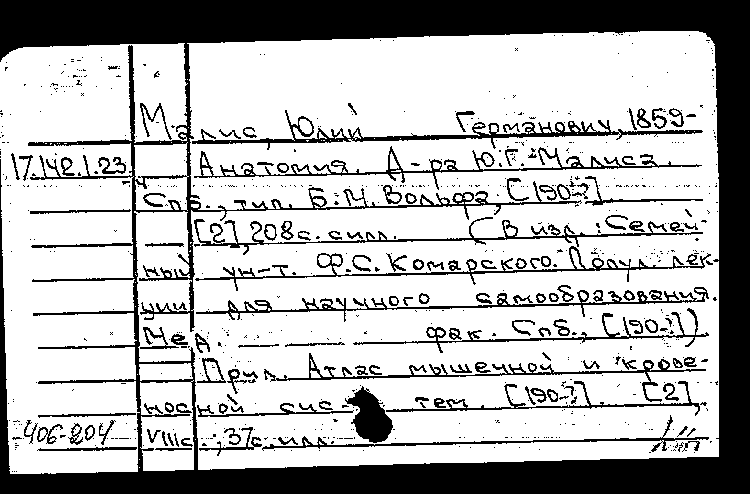 Малис, Юлий Германович, 1859-
17.142.1.23 Анатомия. Д-ра Ю.Г. Малиса.
Спб., тип. Б.М. Вольфа, [190-?]
[2], 208с. с илл. (В изд.: Семей-
ный ун-т. Ф.С. Комарского. Попул. лек-
ции для научного самообразования.
Мед. фак. Спб., [190-?])
Прил. Атлас мышечной и крове-
носной сис- тем. [190-?]. [2],
406-204 VIIIс., 37с. илл.